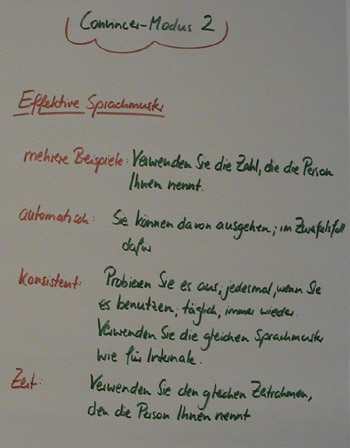 Convincer-Modus 2
Effektive Sprachmuster
mehrere Beispiele: Verwenden Sie die Zahl, die die Person
Ihnen nennt.
automatisch: Sie können davon ausgehen; im Zweifelsfall
dafür
Konsistent: Probieren Sie es aus; jedesmal, wenn Sie
es benutzen; täglich, immer wieder.
Verwenden Sie die gleichen Sprachmuster
wie für Internale.
Zeit: Verwenden Sie den gleichen Zeitrahmen,
den die Person Ihnen nennt